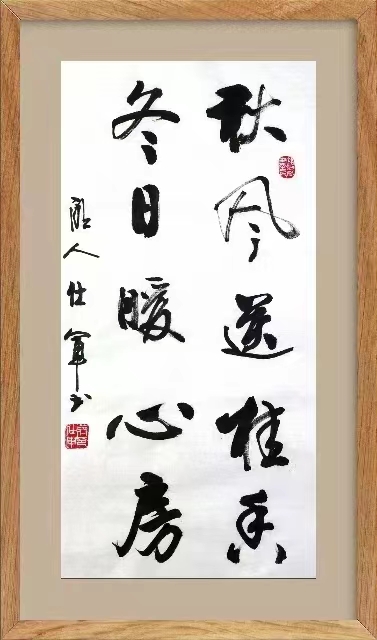 秋风送桂香
冬日暖心房
人仕军书